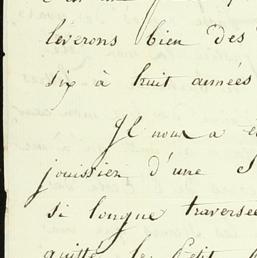 leverons bien des
six à huit années
Il nous a
jouissien d'une
si longue traversée
quitté le Petit